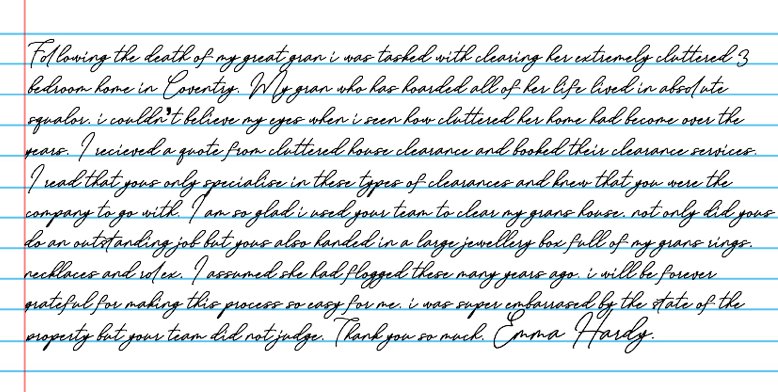 Following the death of my great gran i was tasked with clearing her extremely cluttered 3
bedroom home in Coventry. My gran who has hoarded all of her life lived in absolute
squalor. i couldn't believe my eyes when i seen how cluttered her home had become over the
years. I recieved a quote from cluttered house clearance and booked their clearance services.
I read that yous only specialise in these types of clearances and knew that you were the
company to go with. I am so glad i used your team to clear my grans house. not only did yous
do an outstanding job but yous also handed in a large jewellery box full of my grans rings,
necklaces and rolex. I assumed she had flogged these many years ago. i will be forever
grateful for making this process so easy for me. i was super embarrased by the state of the
property but your team did not judge. Thank you so much. Emma Hardy.